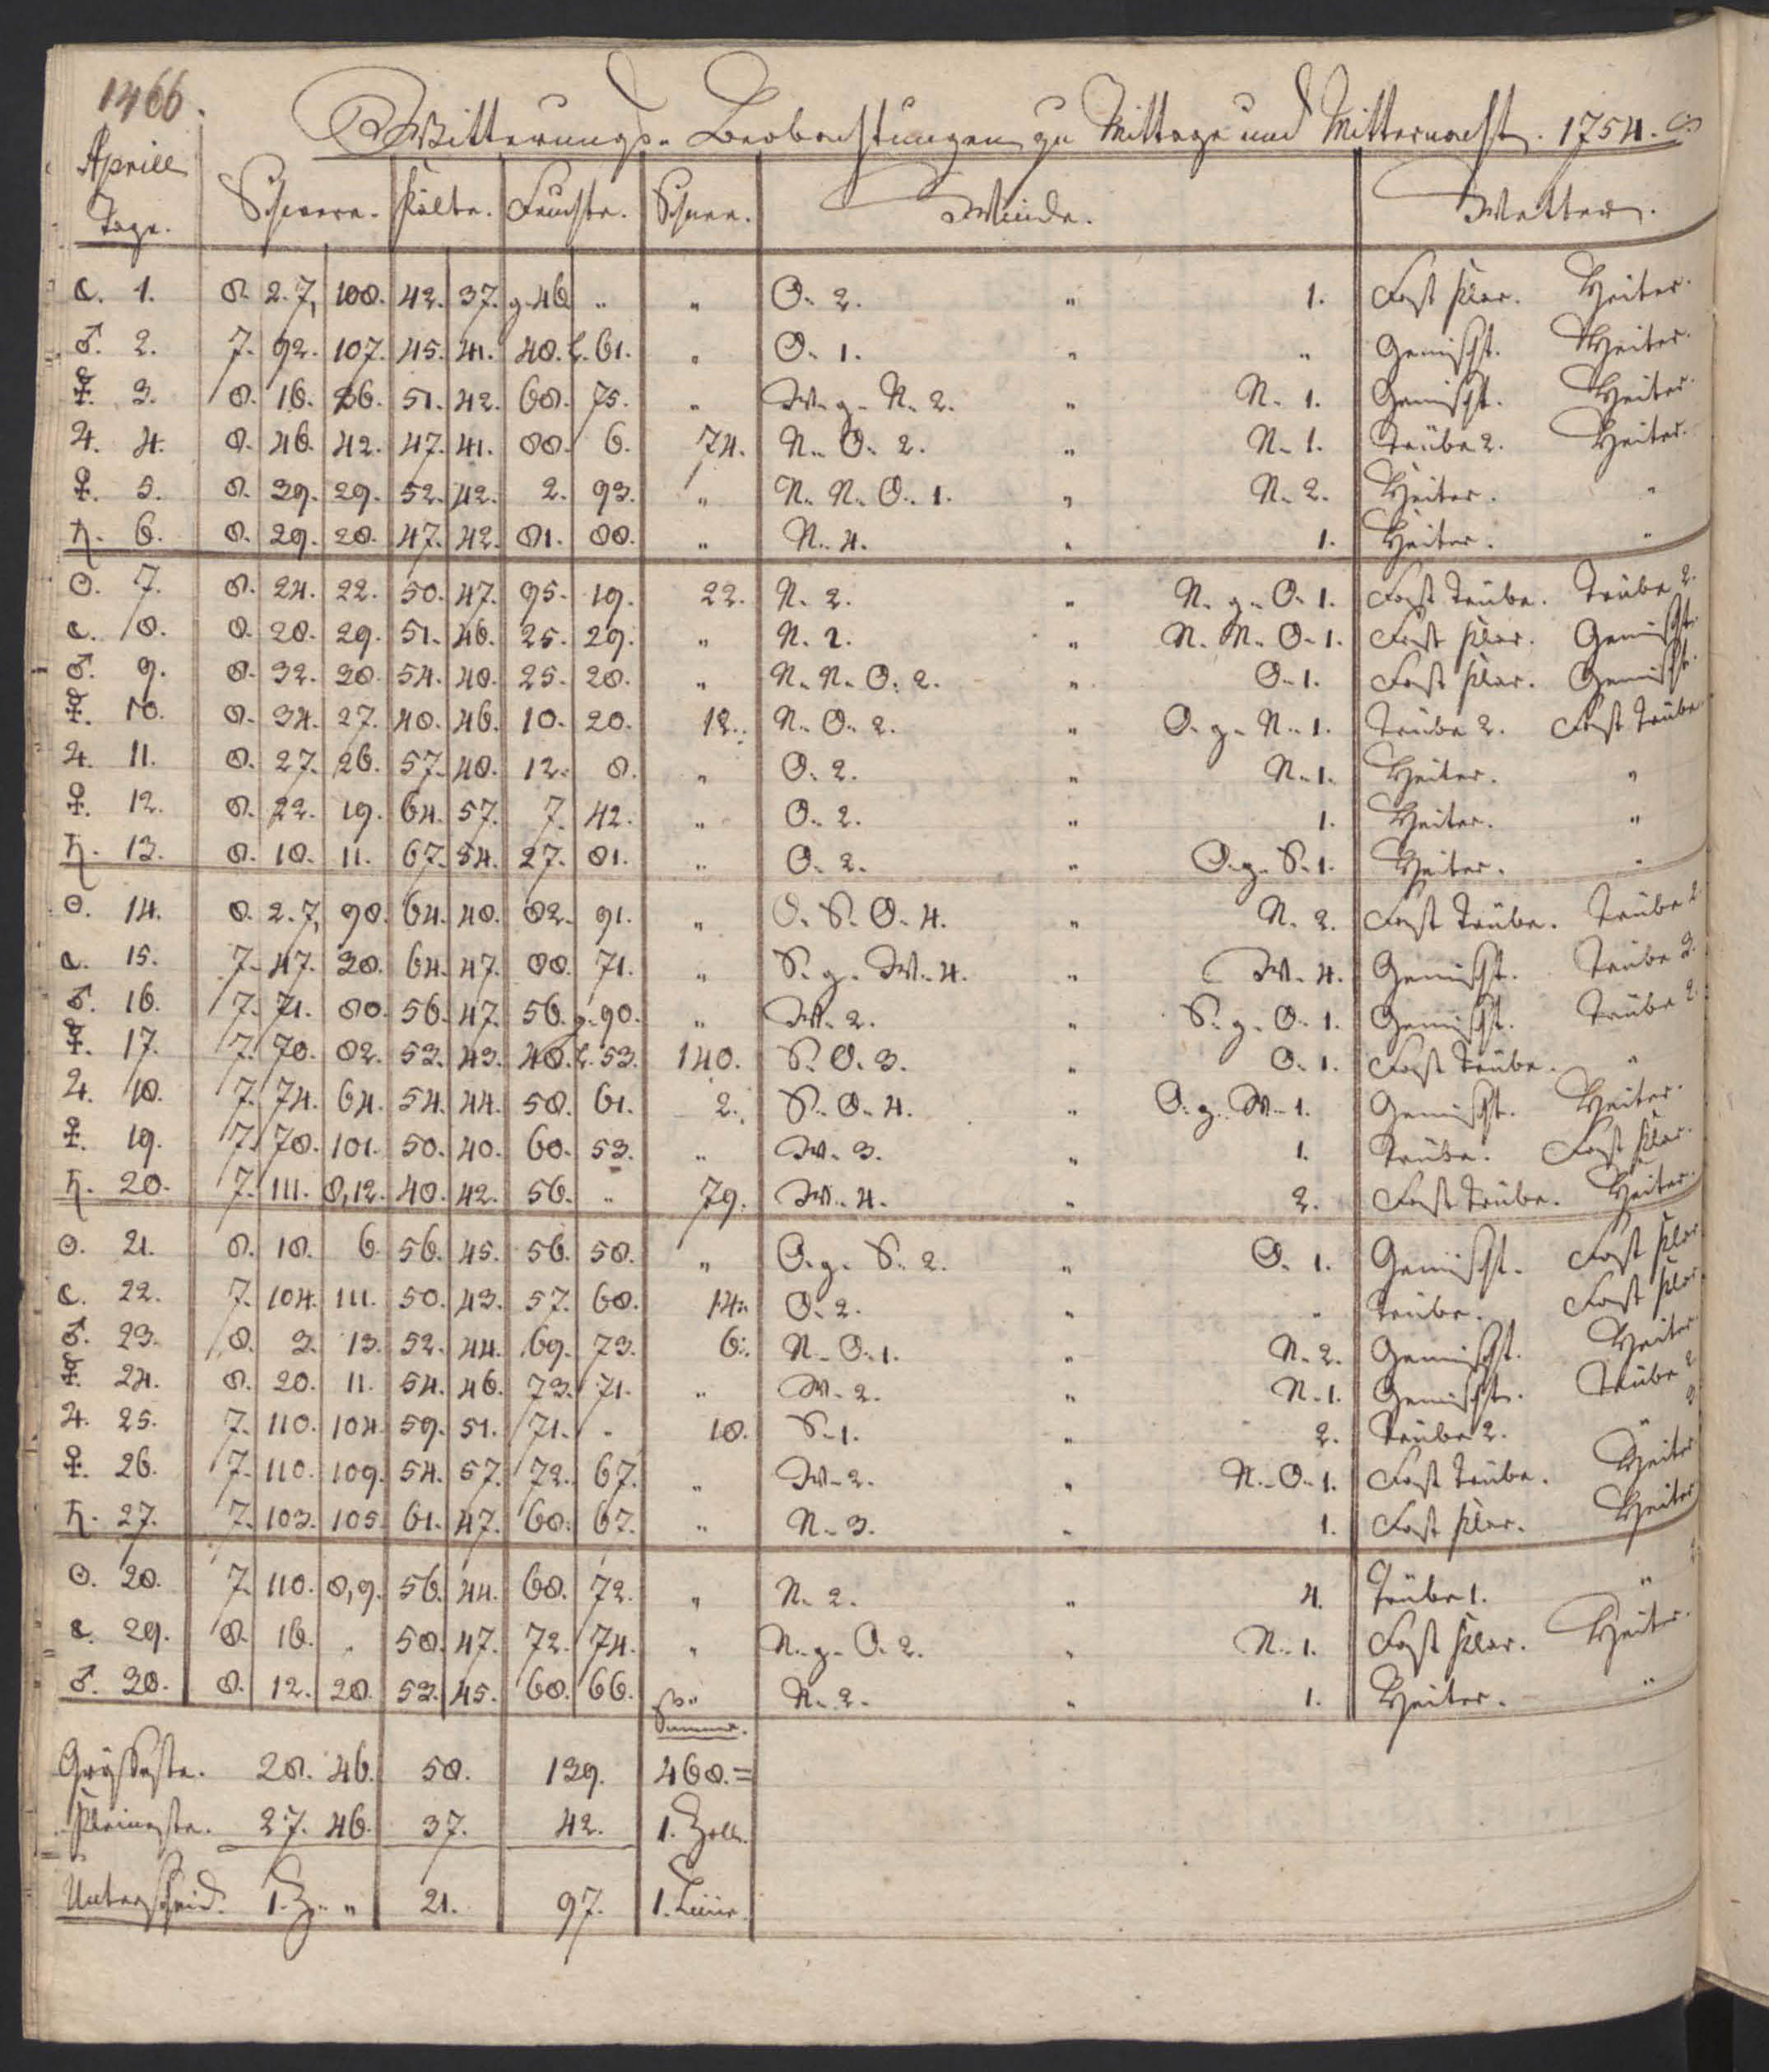 1466.
Witterungs-Beobachtungen zu Mittage und Mitternacht. 1754.
Aprill
Tage. Schwere. Kälte. Feuchte. Schnee. Winde. Wetter.
☾. 1. 8. 2.7, 108. 42. 37. g.46 „ „ O. 2. „ 1. Fast klar. Heiter.
♂. 2. 7. 92. 107. 45. 41. 48. l.61. „ O. 1. „ „ Gemischt. Heiter.
☿. 3. 8. 16. 36. 51. 42. 68. 75. „ W. g. N. 2. „ N. 1. Gemischt. Heiter.
♃. 4. 8. 46. 42. 47. 41. 88. 6. 74. N. O. 2. „ N. 1. Trübe 2. Heiter.
♀. 5. 8. 39. 29. 52. 42. 2. 93. „ N. N. O. 1. „ N. 2. Heiter. „
♄. 6. 8. 29. 28. 47. 42. 81. 88. „ N. 4. „ 1. Heiter. „
☉. 7. 8. 24. 22. 50. 47. 95. 19. 22. N. 2. „ N. g. O. 1. Fast Trübe. Trübe 2.
☾. 8. 8. 28. 29. 51. 46. 25. 29. „ N. 2. „ N. N. O. 1. Fast klar. Gemischt.
♂. 9. 8. 32. 38. 54. 48. 25. 28. „ N. N. O. 2. „ O. 1. Fast klar. Gemischt.
☿. 10. 8. 34. 27. 48. 46. 10. 20. 12. N. O. 2. „ O. g. N. 1. Trübe 2. Fast Trübe.
♃. 11. 8. 27. 26. 57. 48. 12. 8. „ O. 2. „ N. 1. Heiter. „
♀. 12. 8. 22. 19. 64. 57. 7. 42. „ O. 2. „ 1. Heiter. „
♄. 13. 8. 18. 11. 67. 54. 27. 81. „ O. 2. „ O. g. S. 1. Heiter. „
☉. 14. 8. 2.7, 98. 64. 48. 82. 91. „ O. S. O. 4. „ N. 2. Fast Trübe. Trübe 2.
☾. 15. 7. 47. 38. 64. 47. 88. 71. „ S. g. W. 4. „ W. 4. Gemischt. Trübe 3.
♂. 16. 7. 71. 80. 56. 47. 56. g.90. „ W. 2. „ S. g. O. 1. Gemischt. Trübe 2.
☿. 17. 7. 78. 82. 53. 43. 48. l.53. 140. S. O. 3. „ O. 1. Fast Trübe. „
♃. 18. 7. 74. 64. 54. 44. 58. 61. 2. S. O. 4. „ O. g. W. 1. Gemischt. Heiter.
♀. 19. 7. 78. 101. 50. 40. 60. 53. „ W. 3. „ 1. Trübe. Fast klar.
♄. 20. 7. 111. 8,12. 48. 42. 56. „ 79. W. 4. „ 2. Fast Trübe. Heiter.
☉. 21. 8. 18. 6. 56. 45. 56. 58. „ O. g. S. 2. „ O. 1. Gemischt. Fast klar
☾. 22. 7. 104. 111. 50. 43. 57. 68. 14. O. 2. „ „ Trübe. Fast klar
♂. 23. 8. 3. 13. 52. 44. 69. 73. 6. N. O. 1. „ N. 2. Gemischt. Heiter
☿. 24. 8. 20. 11. 54. 46. 73. 71. „ W. 2. „ N. 1. Gemischt. Trübe 2
♃. 25. 7. 110. 104. 59. 51. 71. „ 18. S. 1. „ 2. Trübe 2. „ 3
♀. 26. 7. 110. 109. 54. 57. 72. 67. „ W. 2. „ N. O. 1. Fast Trübe. Heiter
♄. 27. 7. 103. 105. 61. 47. 68. 67. „ N. 3. „ 1. Fast klar. Heiter
☉. 28. 7. 110. 8,9. 56. 44. 68. 72. „ N. 2. „ 4. Trübe 1. „ 2.
☾. 29. 8. 16. „ 58. 47. 72. 74. „ N. g. O. 2. „ N. 1. Fast klar. Heiter.
♂. 30. 8. 12. 28. 53. 45. 68. 66. „ N. 2. „ 1. Heiter. „
Summe.
Grösseste. 28. 46. 58. 139. 468. =
Kleineste. 27. 46. 37. 42. 1. Zoll.
Unterscheid. 1. Z. „ 21. 97. 1. Linie.